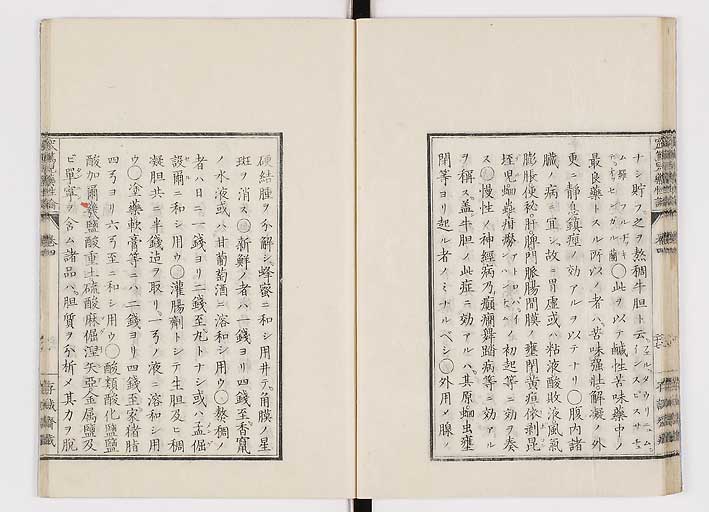 ナシ貯フ之ヲ熬稠牛胆ト云
最良藥トスル所以ノ者ハ苦味強壮解凝ノ外
更ニ靜息鎮痙ノ効アルヲ以テナリ〇腹内諸
臓ノ病ニ宜シ故ニ胃虚或ハ粘液酸敗液風氣
膨脹便秘肝脾門脈腸間膜ノ壅閉黄疸依剥昆
垤児蚘蟲疳癆初起等ニ効ヲ奏
ス〇慢性ノ神經病乃癲癇舞踏病等ニ効アル
ヲ稱ス盖牛胆ノ此症ニ効アルハ其原蚘虫壅
閉等ヨリ起ル者ノミナルベシ〇外用メ腺
硬結腫ヲ分解シ蜂蜜ニ和シ用井テ角膜ノ星
斑ヲ消ス〇新鮮ノ者ハ一錢ヨリ四錢至香竄
ノ水液或ハ甘葡萄酒ニ溶和シ用ウ〇熬稠ノ
者ハ日ニ一錢ヨリ二錢至丸トナシ或ハ孟倔
設爾ニ和シ用ウ〇灌腸劑トシテ生胆及ヒ稠
凝胆共ニ半錢迠ヲ取リ一弓ノ液ニ溶和シ用
ウ〇塗藥軟膏等ニハ二錢ヨリ四錢至家猪脂
四弓ヨリ六弓至ニ和シ用ウ〇酸類酸化鹽鹽
酸加爾幾鹽酸重土硫酸麻倔涅矢亞金属鹽及
ビ單寧ヲ含ム諸品ハ胆質ヲ分析メ其力ヲ脱
卷四